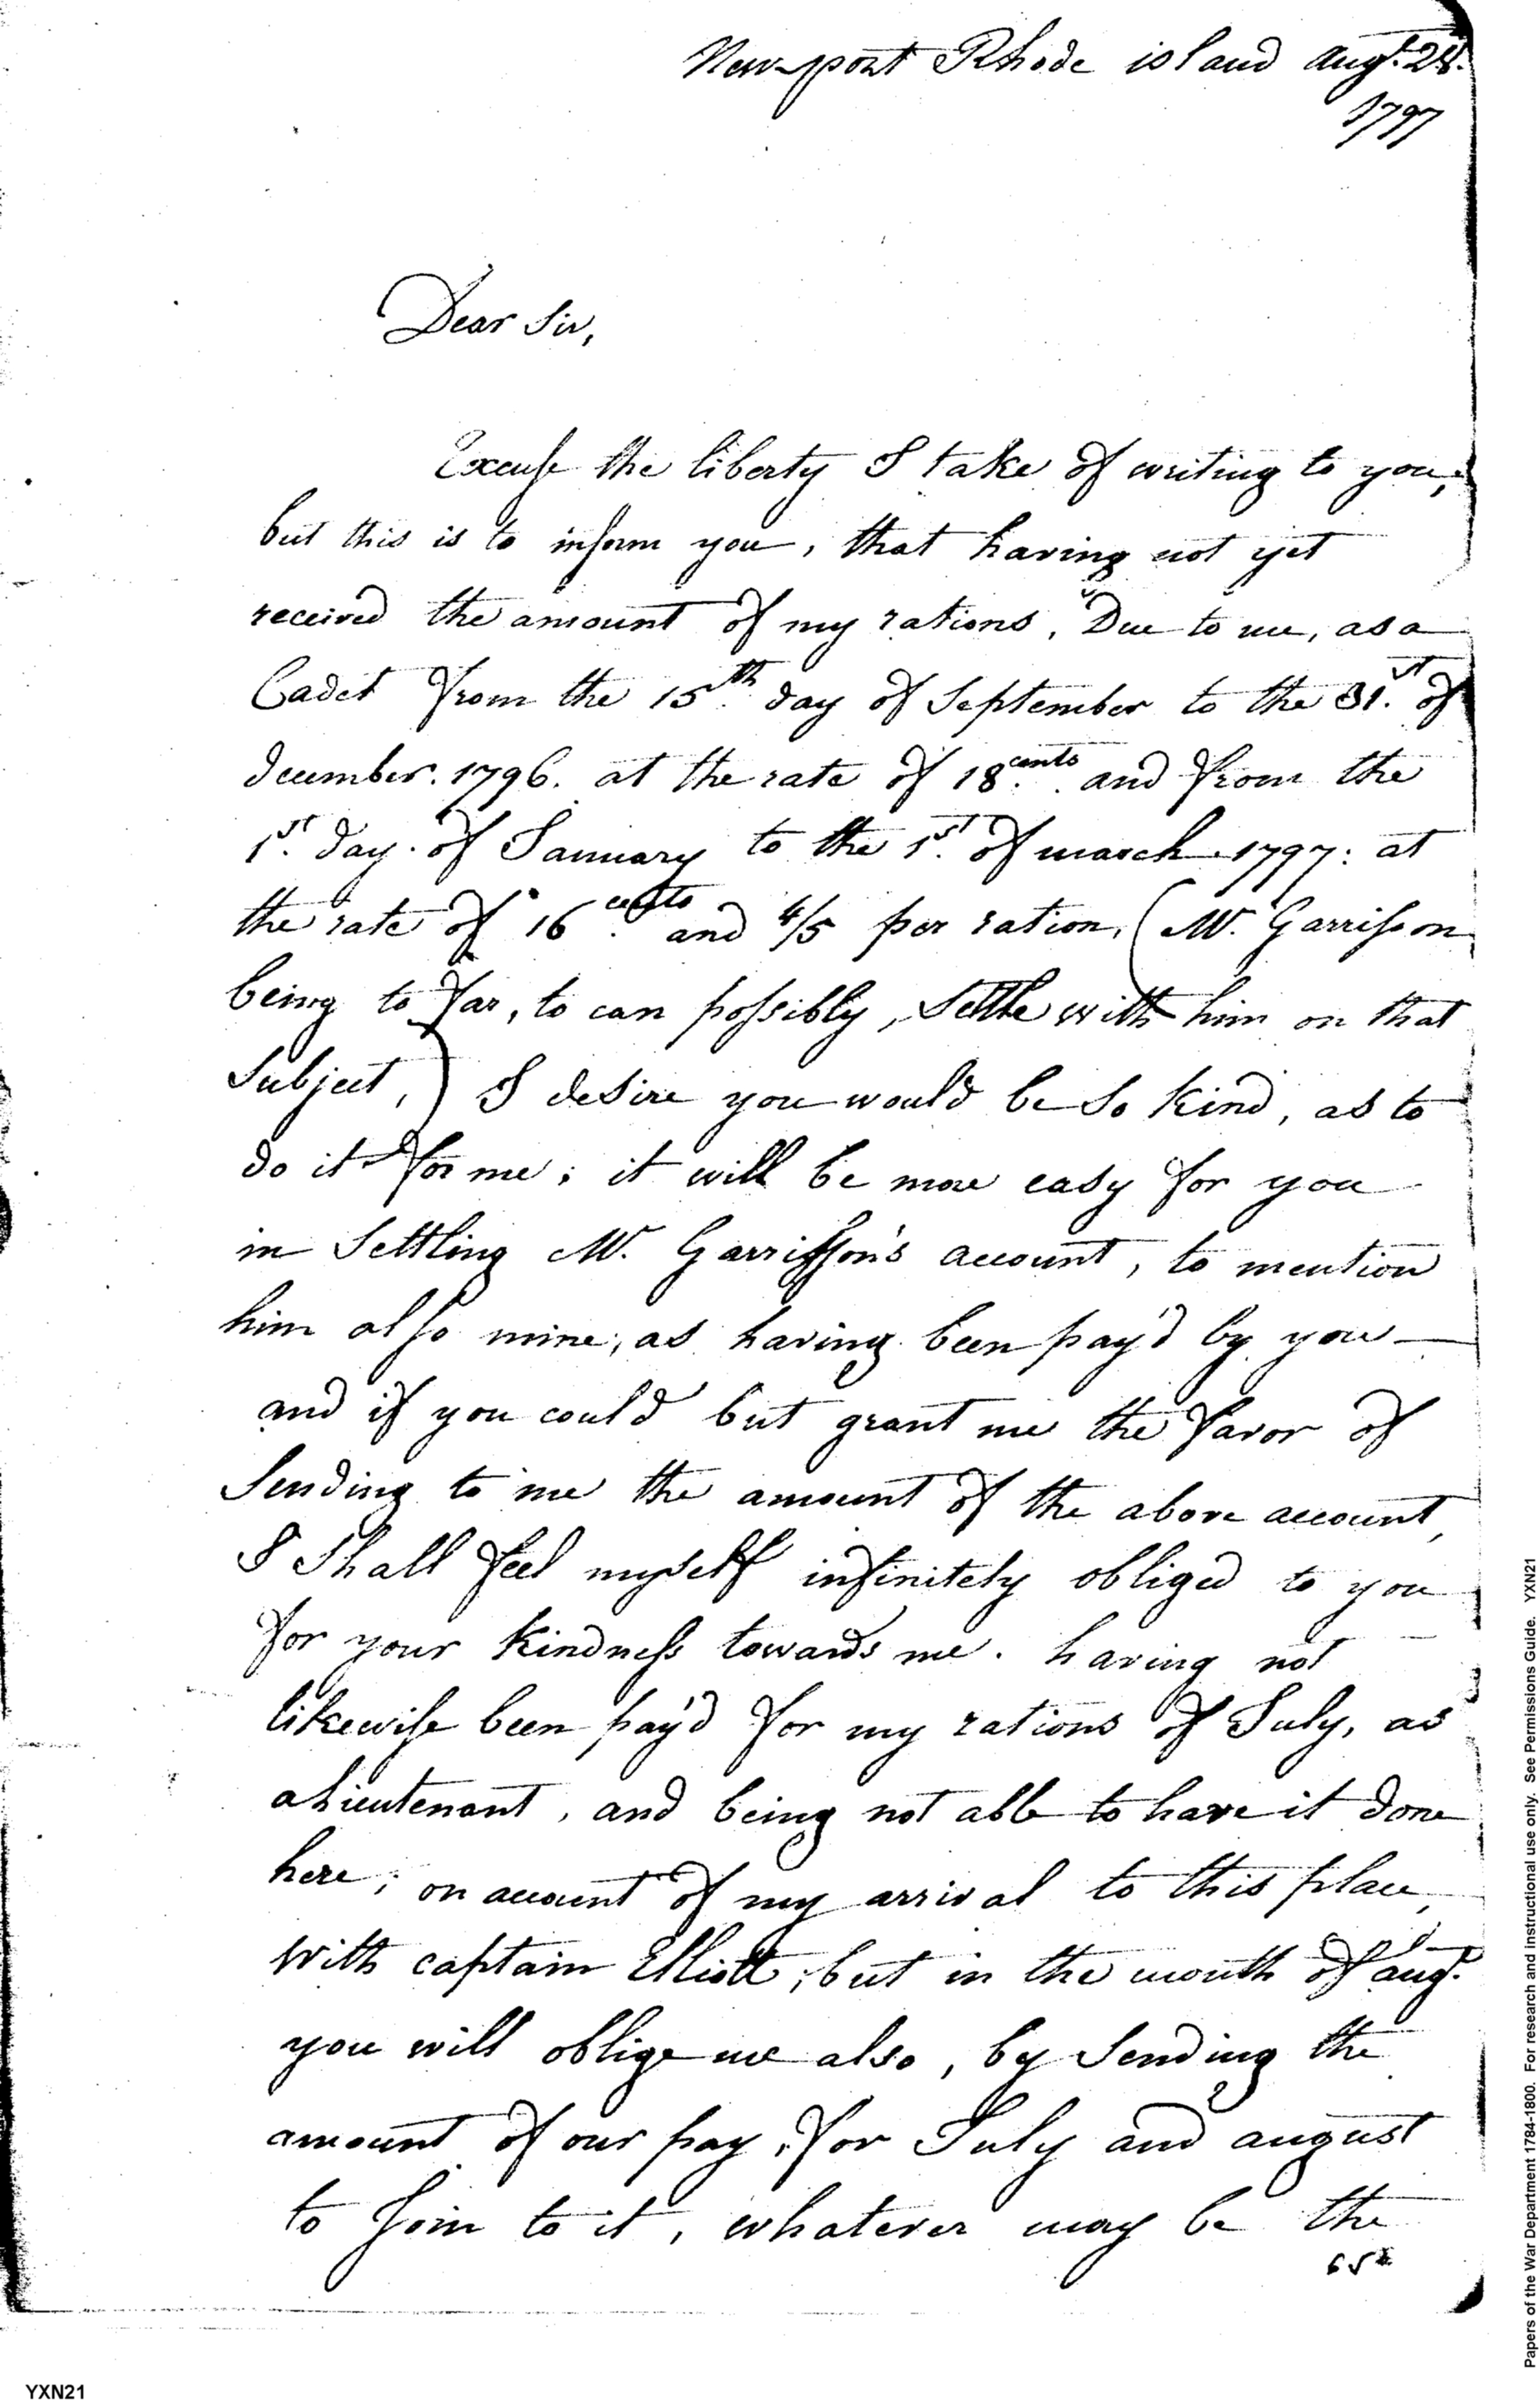 Newport Rhode island Augt. 28.
1797
Dear Sir,
Excuse the liberty I take of writing to you,
but this is to inform you, that having not yet
received the amount of my rations, Due to me, as a
Cadet from the 15th. day of September to the 31.st of
december. 1796. at the rate of 18 cents. and from the
1st. day. of January to the 1st. of march. 1797: at
the rate of 16 cents. and 4/5 per ration, (Mr. Garrisson
being to far, to can possibly, Settle with him on that
Subject,) I desire you would be So Kind, as to
do it for me; it will be more easy for you
in Settling Mr. Garrisson's account, to mention
him also mine; as having been pay'd by you
and if you could but grant me the favor of
Sending to me the amount of the above account,
I Shall feel myself infinitely obliged to you
for your Kindness towards me. having not
likewise been pay'd for my rations of July, as
a Lieutenant, and being not able to have it done
here; on account of my arrival to this place,
With captain Elliott; but in the month of augt.
you will oblige me also, by Sending the
amount of our pay, for July and august
to Join to it, whatever may be the
YXN21
Papers of the War Department 1784-1800. For research and instructional use only. See Permissions Guide. YXN21